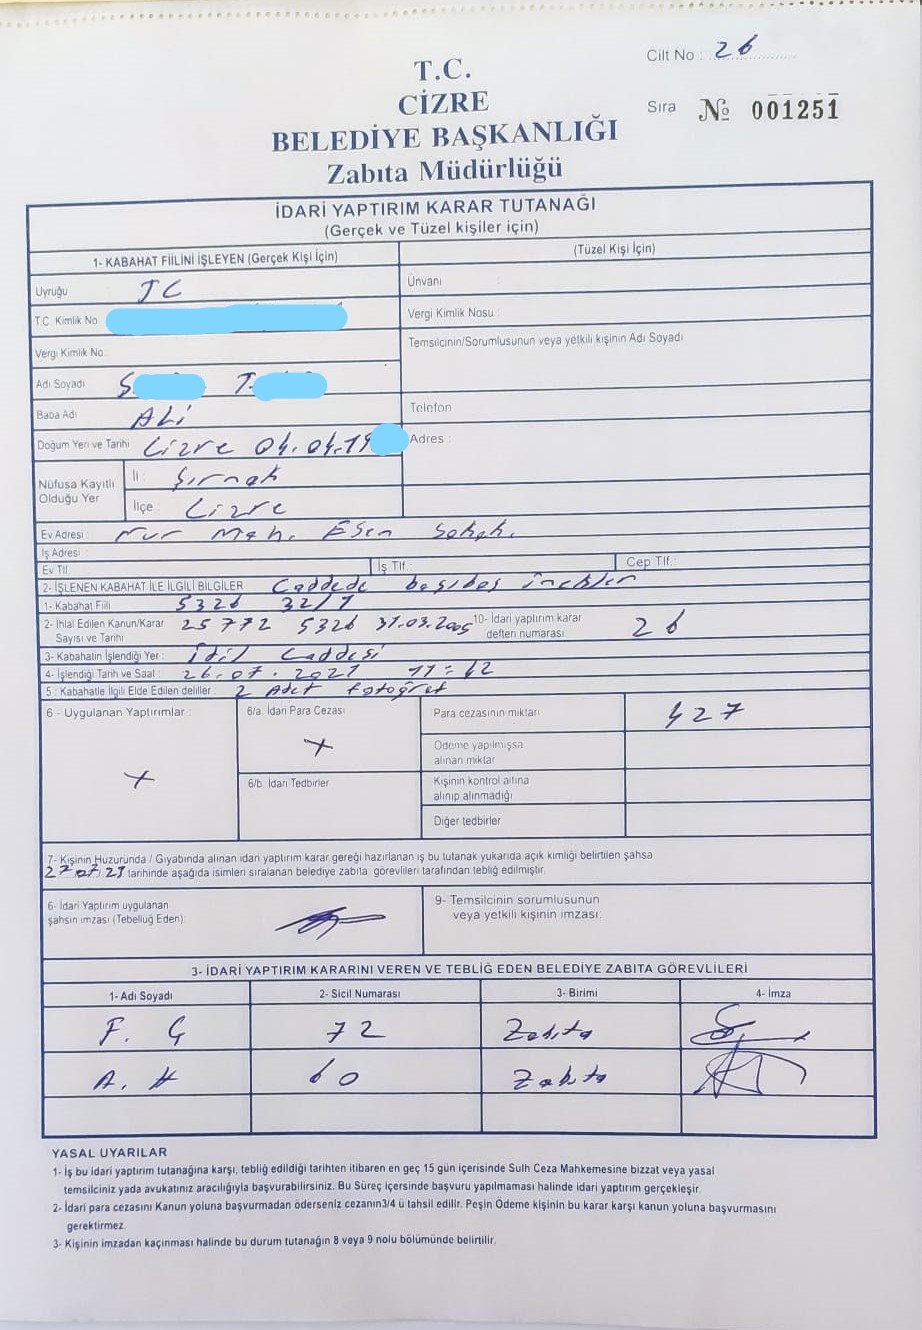 Cilt No : 26
T.C.
CİZRE
BELEDİYE BAŞKANLIĞI
Zabıta Müdürlüğü
Sıra № 001251
İDARİ YAPTIRIM KARAR TUTANAĞI
(Gerçek ve Tüzel kişiler için)
1- KABAHAT FİİLİNİ İŞLEYEN (Gerçek Kişi İçin)
(Tüzel Kişi İçin)
Uyruğu TC
Ünvanı
T.C. Kimlik No
Vergi Kimlik Nosu :
Vergi Kimlik No.
Temsilcinin/Sorumlusunun veya yetkili kişinin Adı Soyadı
Adı Soyadı S T.
Baba Adı ALİ
Telefon
Doğum Yeri ve Tarihi Cizre 04.04.19
Adres :
Nüfusa Kayıtlı Olduğu Yer
İl : Şırnak
İlçe : Cizre
Ev Adresi Nur Mah. Esen Sokak.
İş Adresi :
Ev Tlf.
İş Tlf.:
Cep Tlf.:
2- İŞLENEN KABAHAT İLE İLGİLİ BİLGİLER Caddede başıboş inekler
1- Kabahat Fiili 5326 32/1
2- İhlal Edilen Kanun/Karar Sayısı ve Tarihi 25772 5326 31.03.2005
10- İdari yaptırım karar defteri numarası. 26
3- Kabahatin İşlendiği Yer : İdil Caddesi
4- İşlendiği Tarih ve Saat : 26.07.2021 11:42
5 : Kabahatle İlgili Elde Edilen deliller : 2 Adet fotoğraf
6 - Uygulanan Yaptırımlar :
X
6/a. İdari Para Cezası
X
Para cezasının miktarı
427
Ödeme yapılmışsa
alınan miktar
6/b. İdari Tedbirler
Kişinin kontrol altına
alınıp alınmadığı
Diğer tedbirler
7- Kişinin Huzurunda / Gıyabında alınan idari yaptırım karar gereği hazırlanan iş bu tutanak yukarıda açık kimliği belirtilen şahsa
27.07.21 tarihinde aşağıda isimleri sıralanan belediye zabıta görevlileri tarafından tebliğ edilmiştir.
6- İdari Yaptırım uygulanan
şahsın imzası (Tebellüğ Eden):
9- Temsilcinin sorumlusunun
veya yetkili kişinin imzası.
3- İDARİ YAPTIRIM KARARINI VEREN VE TEBLİĞ EDEN BELEDİYE ZABITA GÖREVLİLERİ
1- Adı Soyadı 2- Sicil Numarası 3- Birimi 4- İmza
F. Ç 72 Zabıta
A. H 60 Zabıta
YASAL UYARILAR
1- İş bu idari yaptırım tutanağına karşı, tebliğ edildiği tarihten itibaren en geç 15 gün içerisinde Sulh Ceza Mahkemesine bizzat veya yasal
temsilciniz yada avukatınız aracılığıyla başvurabilirsiniz. Bu Süreç içersinde başvuru yapılmaması halinde idari yaptırım gerçekleşir.
2- İdari para cezasını Kanun yoluna başvurmadan öderseniz cezanın3/4 ü tahsil edilir. Peşin Ödeme kişinin bu karar karşı kanun yoluna başvurmasını
gerektirmez.
3- Kişinin imzadan kaçınması halinde bu durum tutanağın 8 veya 9 nolu bölümünde belirtilir.